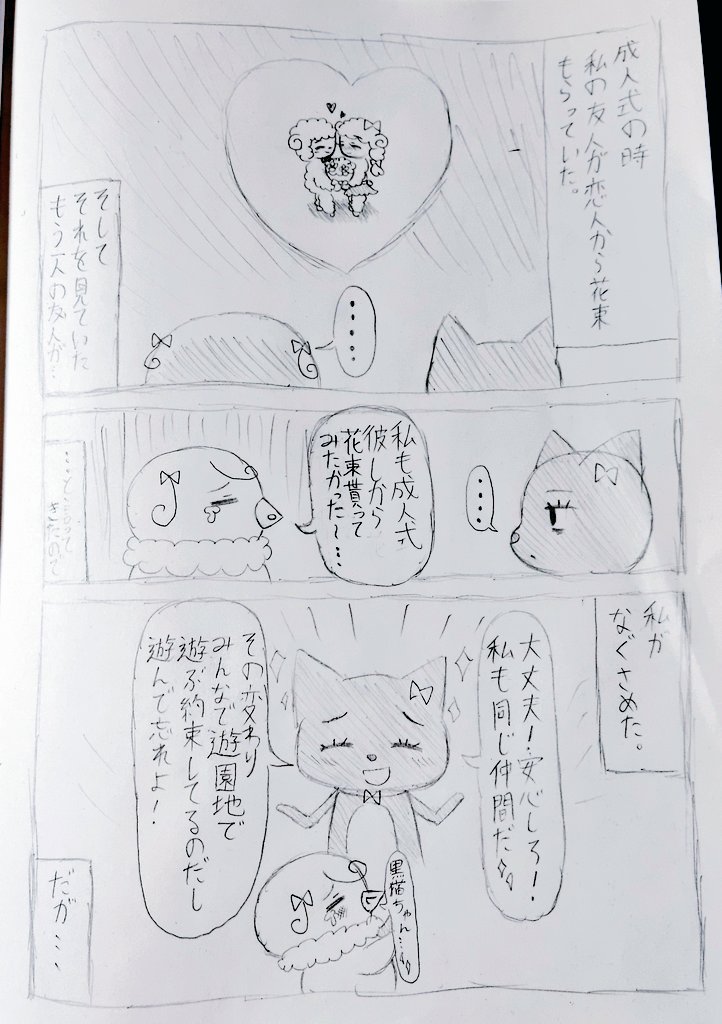 成人式の時
私の友人が恋人から花束
もらっていた。
・・・・・
そして
それを見ていた
もう一人の友人が…
・・・・
私も成人式
彼しから
花束貰って
みたかった〜…
きたので
私が
なぐさめた。
大丈夫！安心しろ！
私も同じ仲間だ
その変わり
みんなで遊園地で
遊ぶ約束してるのだし
遊んで忘れよ！
黒猫ちゃん…
だが…